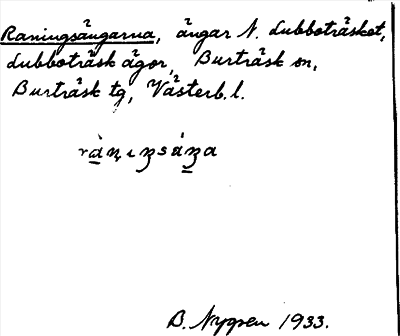 Raningsängarna, ängar N. Lubboträsket,
Lubboträsk ägor, Burträsk sn,
Burträsk tg, Västerb. l.
B. Nygren 1933.